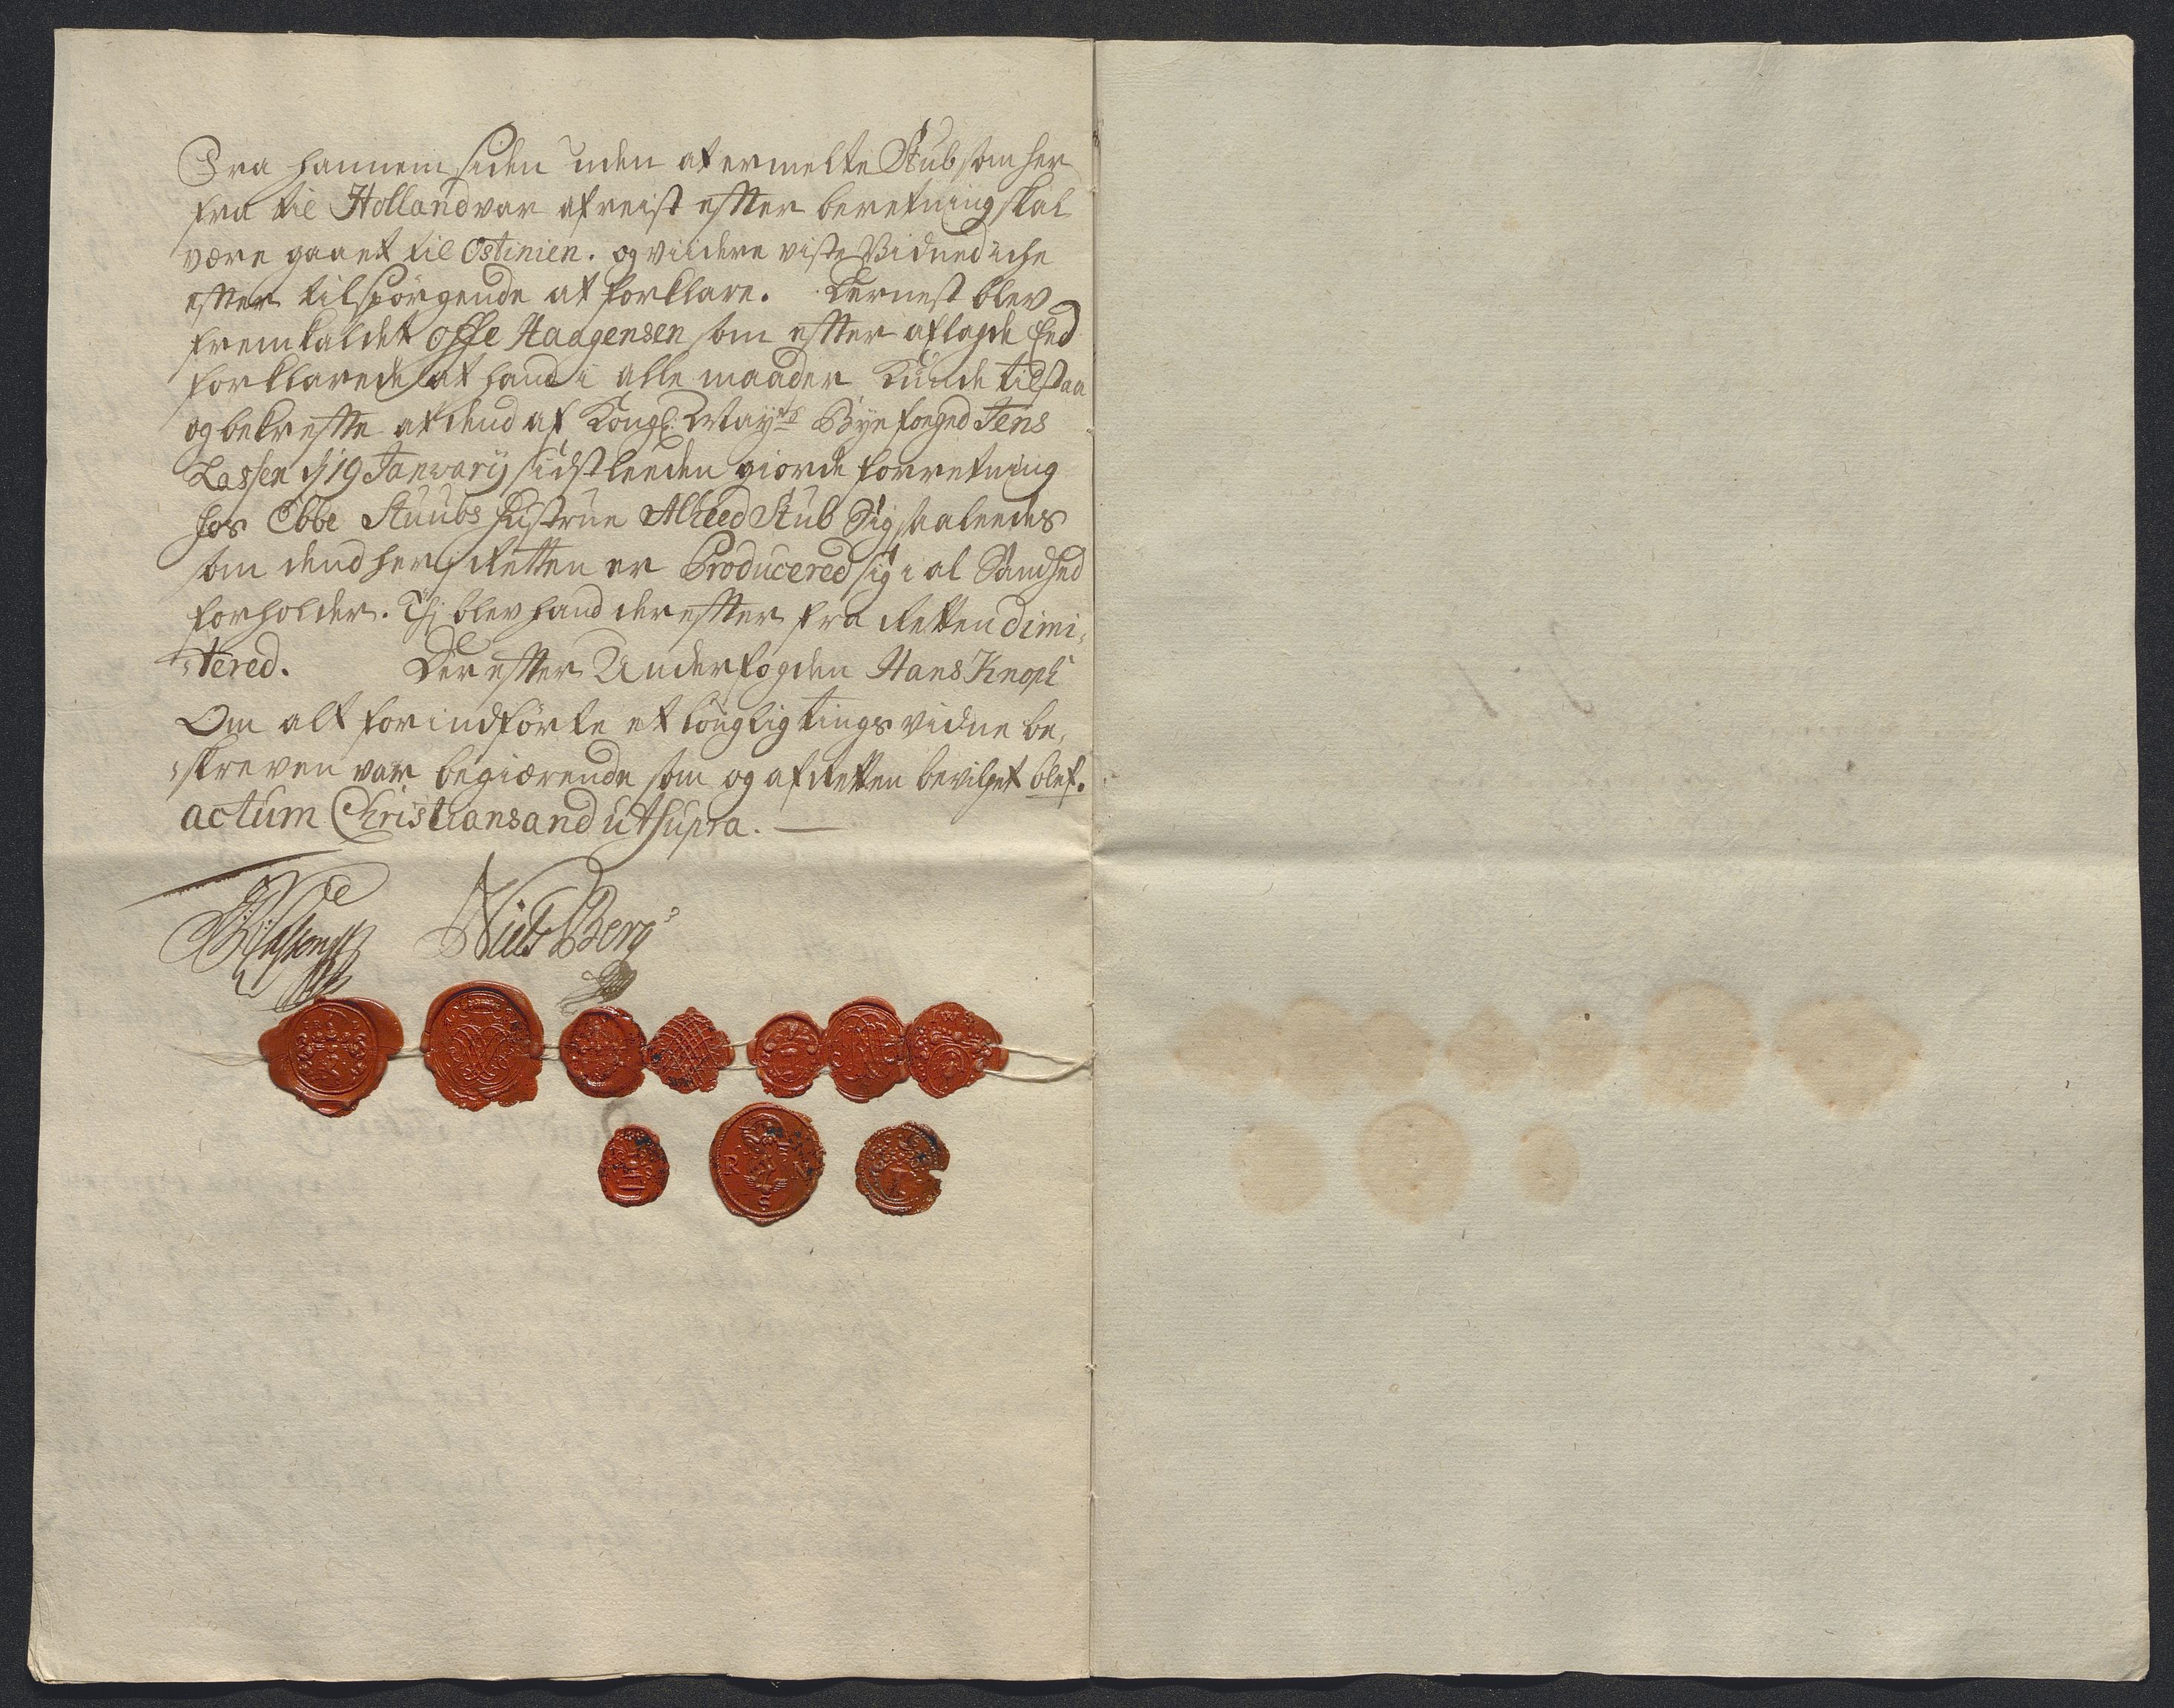 Fra hannem siden uden at ermelte Stub som her
fra til Holland var afreist efter beretning skal
være gaaet til Ostinien. og viidere viste Vidned iche
efter tilspörgende at forklare. Dernest blev
fremkaldet Offe Haagensen som efter aflagde Eed
forklarede at hand i alle maader kunde tilstaa
og bekrefte at dend af Kongl: Mayts Byefoged Jens
Lassen d/ 19 Janvarij sidstleeden giorde forretning
hos Ebbe Stuubs Hustrue Alheed Stub Sig saaleedes
som dend her i Retten er Producered sig i al Sandhed
forholder. Thi blev hand derefter fra Retten dimi,
,tered. Der efter Underfogden Hans Knoph
Om alt forindförte et lougligt tings vidne be,
,skreven var begiærende som og af Retten bevilget blef.
actum Christiansand ut supra. —
Niels Berg
R N
S